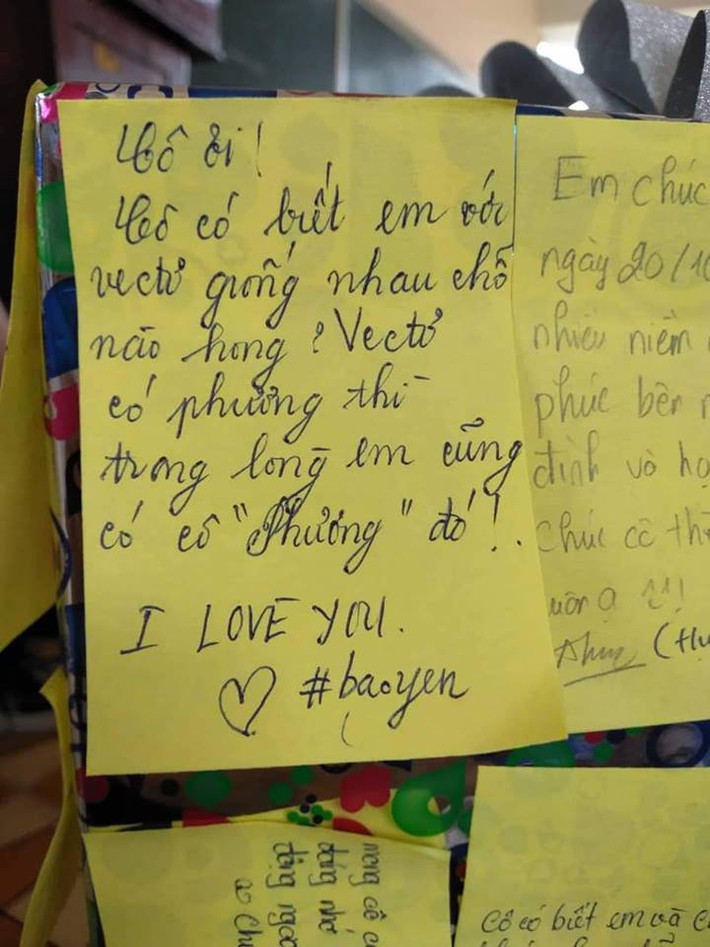 Cô ơi!
Cô có biết em với
vectơ giống nhau chỗ
nào hong? Vectơ
có phương thì
trong lòng em cũng
có cô "Phương" đó!.
I LOVE YOU.
♡ #baoyen
Em chúc
ngày 20/10
nhiều niềm
phúc bên
đình và
chúc cô
uôn ạ
mong cô
đáng nhớ
tặng
Cô có biết em và c